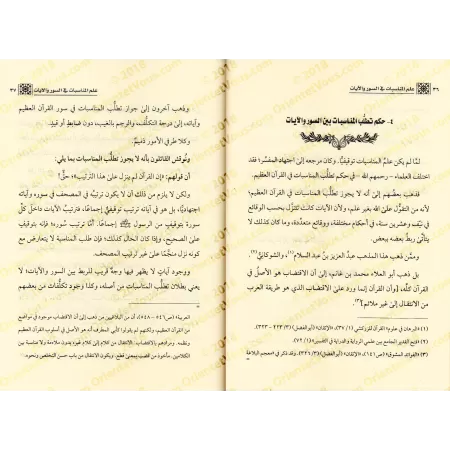 ٣٦ علم المناسبات في السور والآيات
٤- حكم تطلُّب المناسبات بين السور والآيات
لمَّا لم يكن علمُ المناسبات توقيفيًّا، وكان مرجعه إلى اجتهاد المفسِّر؛ فقد
اختلف العلماء - رحمهم الله - في حكم تطلُّب المناسبات في القرآن العظيم:
فذهب بعضُهم إلى أنه لا يجوز تطلُّب المناسبات في القرآن العظيم؛
لأنه من التقوُّل على الله بغير علم، ولأن الآيات كانت تتنزَّل بحسب الوقائع
في نيِّف وعشرين سنة، في أحكام مختلفة، ووقائع متعدِّدة، وما كان كذلك لا
يتأتَّى ربطُ بعضه ببعض.
وممَّن ذهب هذا المذهب عبدُ العزيز بنُ عبد السلام(١)، والشوكانيُّ(٢).
بل ذهب أبو العلاء محمد بن غانم، إلى أن الاقتضاب هو الأصلُ في
القرآن كلِّه، وأن القرآن إنما ورد على الاقتضاب الذي هو طريقة العرب
من الانتقال إلى غير ملائم(٣).
(١) «البرهان في علوم القرآن» للزركشي (١/ ٣٧)، «الإتقان» (أبو الفضل) (٣/ ٣٢٢ - ٣٢٣).
(٢) «فتح القدير الجامع بين علمي الرواية والدراية في التفسير» (١/ ٧٢).
علم المناسبات في السور والآيات ٣٧
وذهب آخرون إلى جواز تطلُّب المناسبات في سور القرآن العظيم
وآياته، إلى درجة التكلُّف، والرجم بالغيب، دون ضابطٍ أو قيدٍ.
وكلا طرفي الأمور ذميمُ.
ونُوقش القائلون بأنه لا يجوز تطلُّب المناسبات بما يلي:
أن قولهم: «إن القرآن لم ينزل على هذا الترتيب»؛ حقٌّ!
ولكن لا يلزم من ذلك أن لا يكون ترتيبُه في المصحف في سوره
اجتهاديًّا، بل هو في آياته ترتيب توقيفيٌّ إجماعًا، فترتيبُ الآيات داخلَ كلِّ
سورة بتوقيفٍ من الرسول ﷺ إجماعًا. أمَّا ترتيب سوره؛ فإنه بتوقيفٍ
على الصحيح، وإذا كان الحال كذلك؛ فإن طلب المناسبة لا يتعارض مع
كونه نزل منجَّمًا على غير ترتيب المصحف.
ووجود آياتٍ لا يظهر فيها وجهٌ قريب للربط بين السور والآيات؛ لا
يعني بطلان تطلُّب المناسبات من أصله، وكذا وجود تكلُّفات من بعضهم